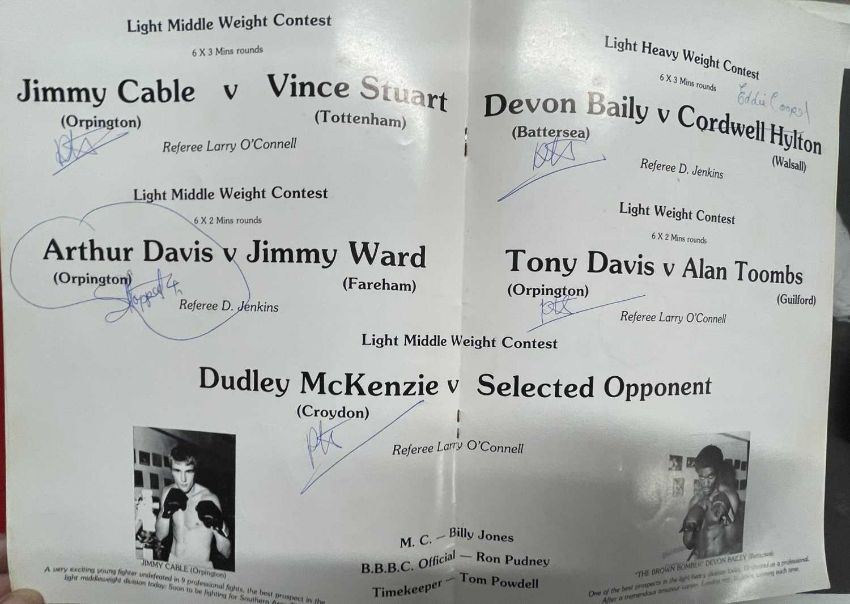 Light Middle Weight Contest
6 X 3 Mins rounds
Jimmy Cable v Vince Stuart
(Orpington) (Tottenham)
pts
Referee Larry O'Connell
Light Middle Weight Contest
6 X 2 Mins rounds
Arthur Davis v Jimmy Ward
(Orpington) (Fareham)
Stopped 4
Referee D. Jenkins
Light Heavy Weight Contest
6 X 3 Mins rounds
Eddie
Devon Baily v Cordwell Hylton
(Battersea) (Walsall)
pts
Referee D. Jenkins
Light Weight Contest
6 X 2 Mins rounds
Tony Davis v Alan Toombs
(Orpington) (Guilford)
pts
Referee Larry O'Connell
Light Middle Weight Contest
Dudley McKenzie v Selected Opponent
(Croydon)
pts
Referee Larry O'Connell
M. C. – Billy Jones
B.B.B.C. Official — Ron Pudney
Timekeeper – Tom Powdell
JIMMY CABLE (Orpington)
A very exciting young fighter undefeated in 9 professional fights, the best prospect in the
light middleweight division today: Soon to be fighting for Southern
"THE BROWN BOMBER" DEVON BAILEY (Battersea)
One of the best prospects in the light heavy division
After a tremendous amateur career.